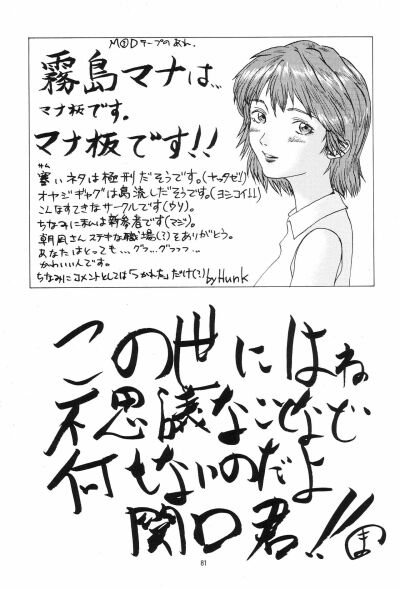 MODテープのおれ、
霧島マナは…
マナ板です。
マナ板です!!
サム
寒いネタは極刑だそうです。(ヤッタゼ!)
オヤジギャグは島流しだそうです。(ヨシコイ!!)
こんなすてきなサークルです(ウソ)。
ちなみに私は新参者です(マジ)。
朝凪さん ステキな職場(?)をありがとう。
あなたはとっても…グラ…グラララ…
かわいいんです。
ちなみにコメントとしては「つかれた」だけ(?) by Hunk
この世にはね
不思議なことなど
何もないのだよ
関口君!! ま
81